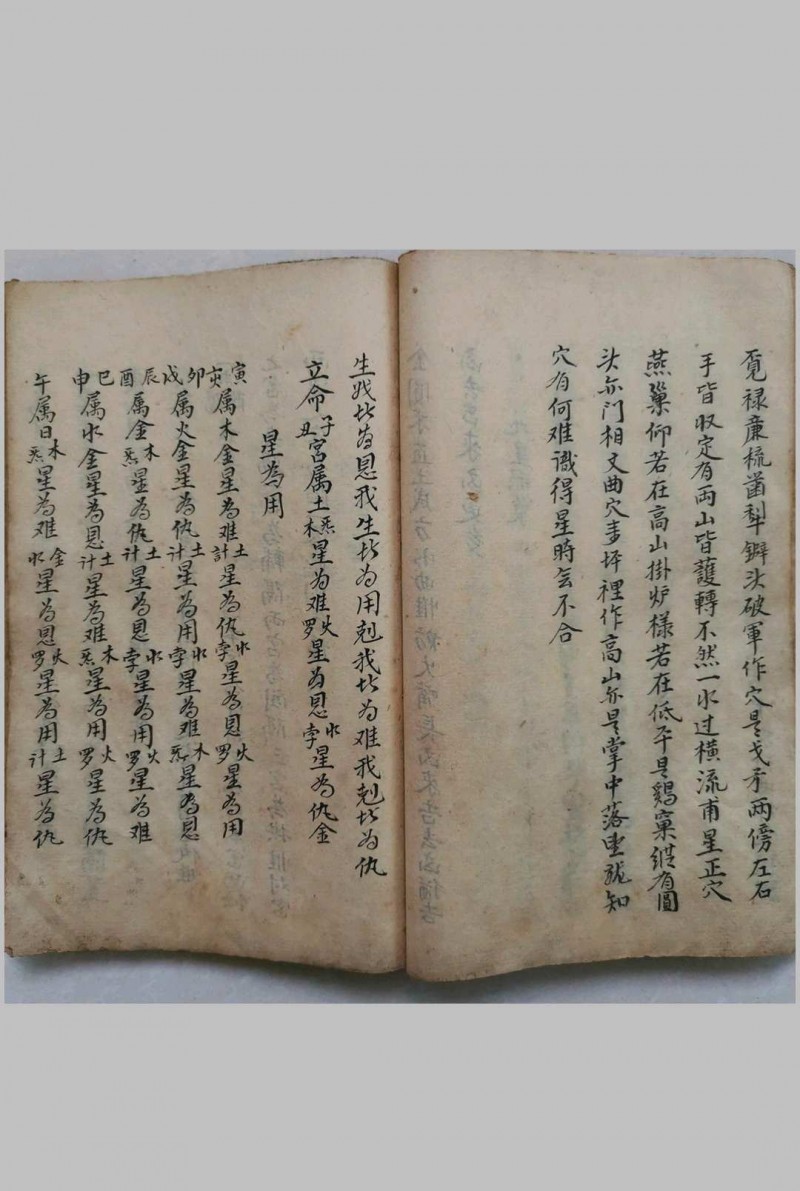 覔禄廉梳齒犁鐴头破軍作穴是戈矛兩傍左右
手皆収定有兩山皆護轉不然一水过横流甫星正穴
燕巢仰若在高山掛炉樣若在低平是鷄窠縱有圓
头亦門相文曲穴坪裡作高山亦是掌中落龍知
穴有何难識得星時会不合
生我皆為恩我生皆为用剋我皆为难我剋皆为仇
立命子丑宮属土木炁星為难火罗星為恩水孛星為仇金
星為用
寅亥属木金星為难土計星為仇水孛星為恩火罗星為用
卯戌属火金星為仇土计星為用水孛星為难木炁星為恩
辰酉属金木炁星為仇土计星為恩水孛星為用火罗星為难
巳申属水金星為恩土计星為难木炁星為用火罗星為仇
午属日木炁星為难金水星為恩火罗星為用土计星為仇